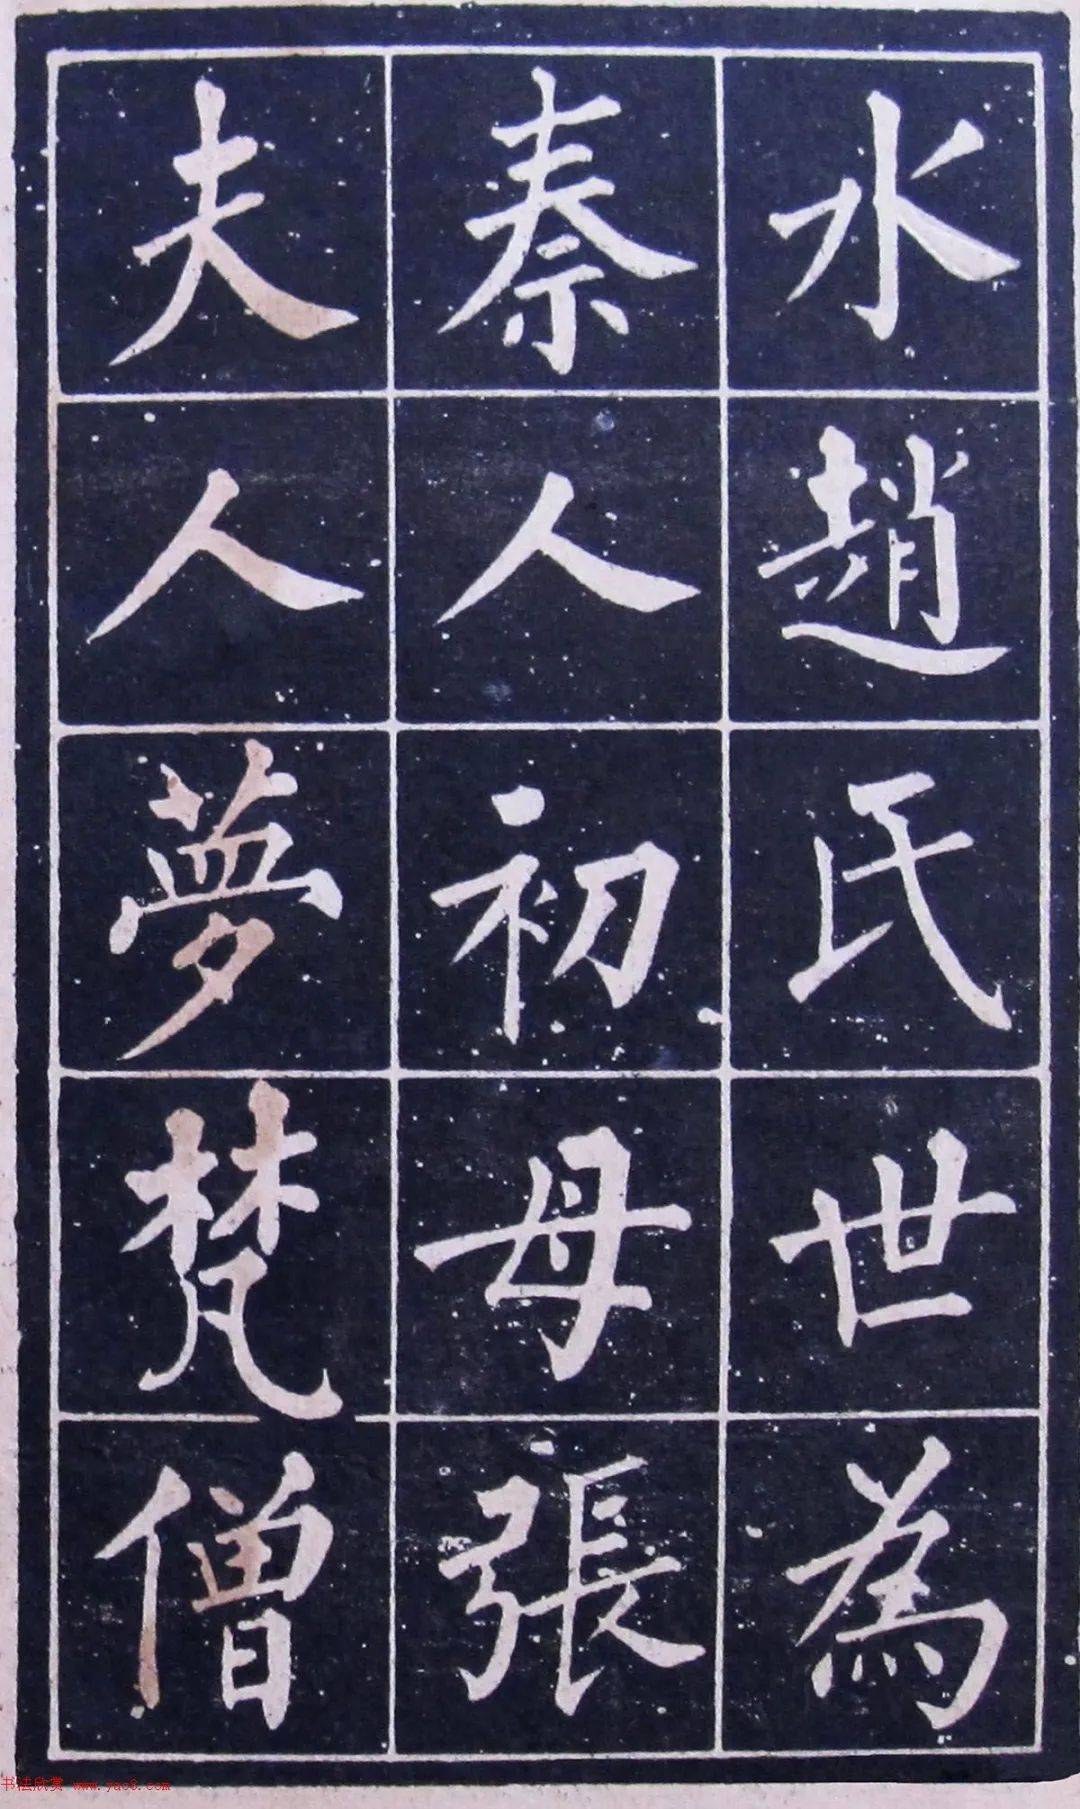 水趙氏世為
秦人初母張
夫人夢梵僧
书法欣赏 www.yac8.com